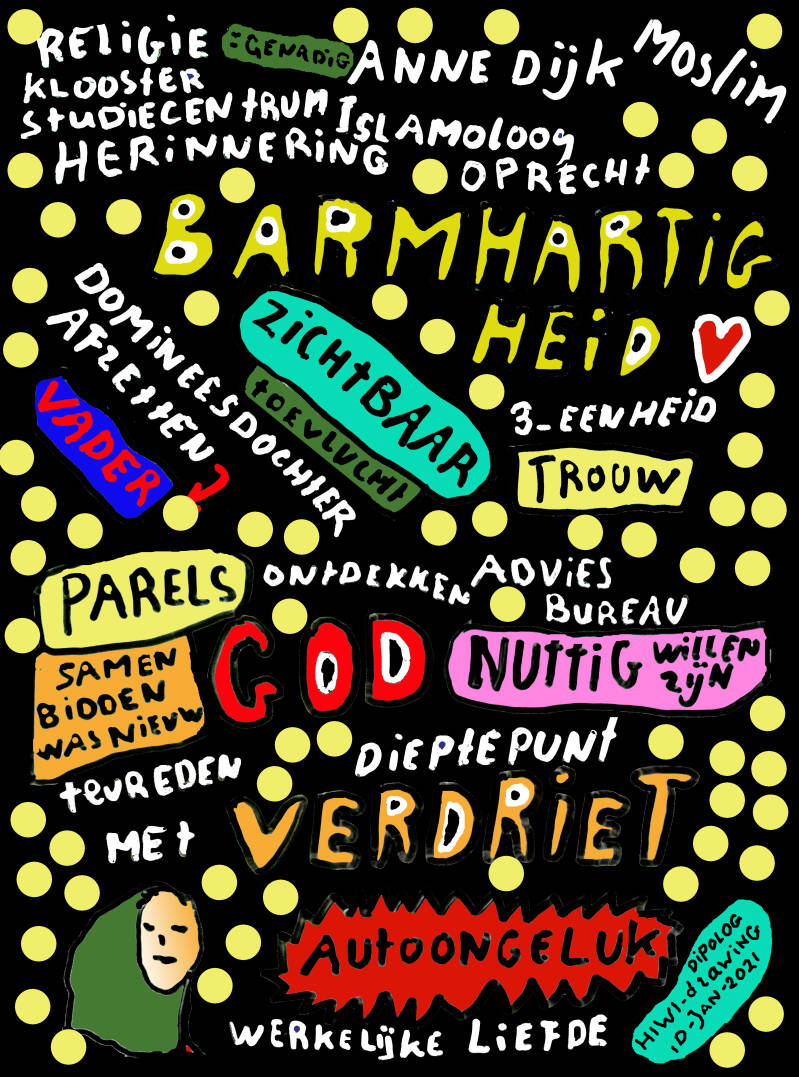 RELIGIE =GENADIG ANNE DIJK MOSLIM
KLOOSTER
STUDIECENTRUM ISLAMOLOOG
HERINNERING OPRECHT
BARMHARTIG
HEID
DOMINEESDOCHTER
AFZETTEN?
VADER
ZICHTBAAR
TOEVLUCHT
3-EENHEID
TROUW
PARELS ONTDEKKEN ADVIES
BUREAU
SAMEN
BIDDEN
WAS NIEUW
GOD
NUTTIG WILLEN
ZIJN
TEVREDEN
MET
DIEPTEPUNT
VERDRIET
AUTOONGELUK
DIPOLOG
HIWI-DRAWING
10-JAN-2021
WERKELIJKE LIEFDE